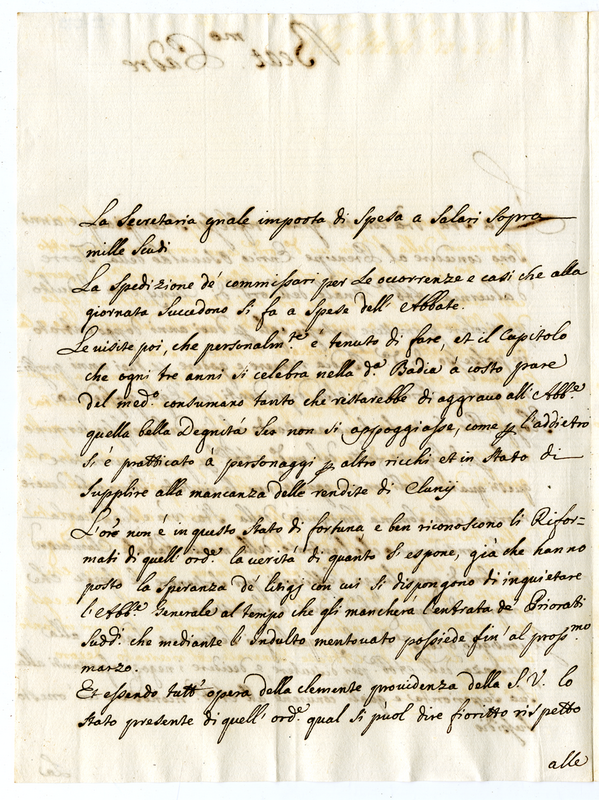 La Secretaria quale importa di spesa a Salari sopra
mille Scudi
La spedizione de' commissari per le occorrenze e casi che alla
giornata succedono si fa a spese dell' Abbate.
Le visite poi, che personalm.te è tenuto di fare, et il Capitolo
che ogni tre anni si celebra nella d.a Badia à costo pare
del med.o consumano tanto che restarebbe di aggravo all' Abb.e
quella bella Degnità se non si appoggiasse, come p l'addietro
si è pratticato à personaggi p altro ricchi et in stato di
supplire alla mancanza delle rendite di Clunij
L'orõ non è in questo stato di fortuna e ben riconoscono li Rifor=
mati di quell' ord.e la verità di quanto si espone, già che hanno
posto la speranza de' litigj con cui si dispongono di inquietare
l'Abb.e Generale al tempo che gli mancherà l'entrata de' Priorati
Sudd.i che mediante l' indulto mentovato possiede fin' al pross.mo
marzo.
Et essendo tutt' opera della clemente providenza della S. V. lo
stato presente di quell' ord.e qual si può dire fioritto rispetto
alle